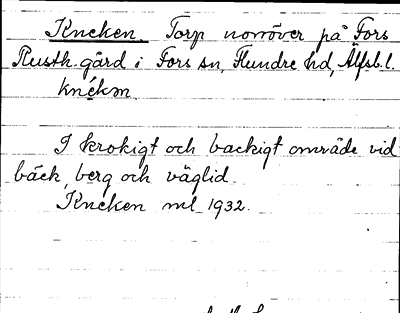 Knecken. Torp norröver på Fors
Rusth. gård i Fors sn, Flundre hd, Älfsb. l.
knékən
I krokigt och backigt område vid
bäck, berg och väglid.
Knecken ml 1932.